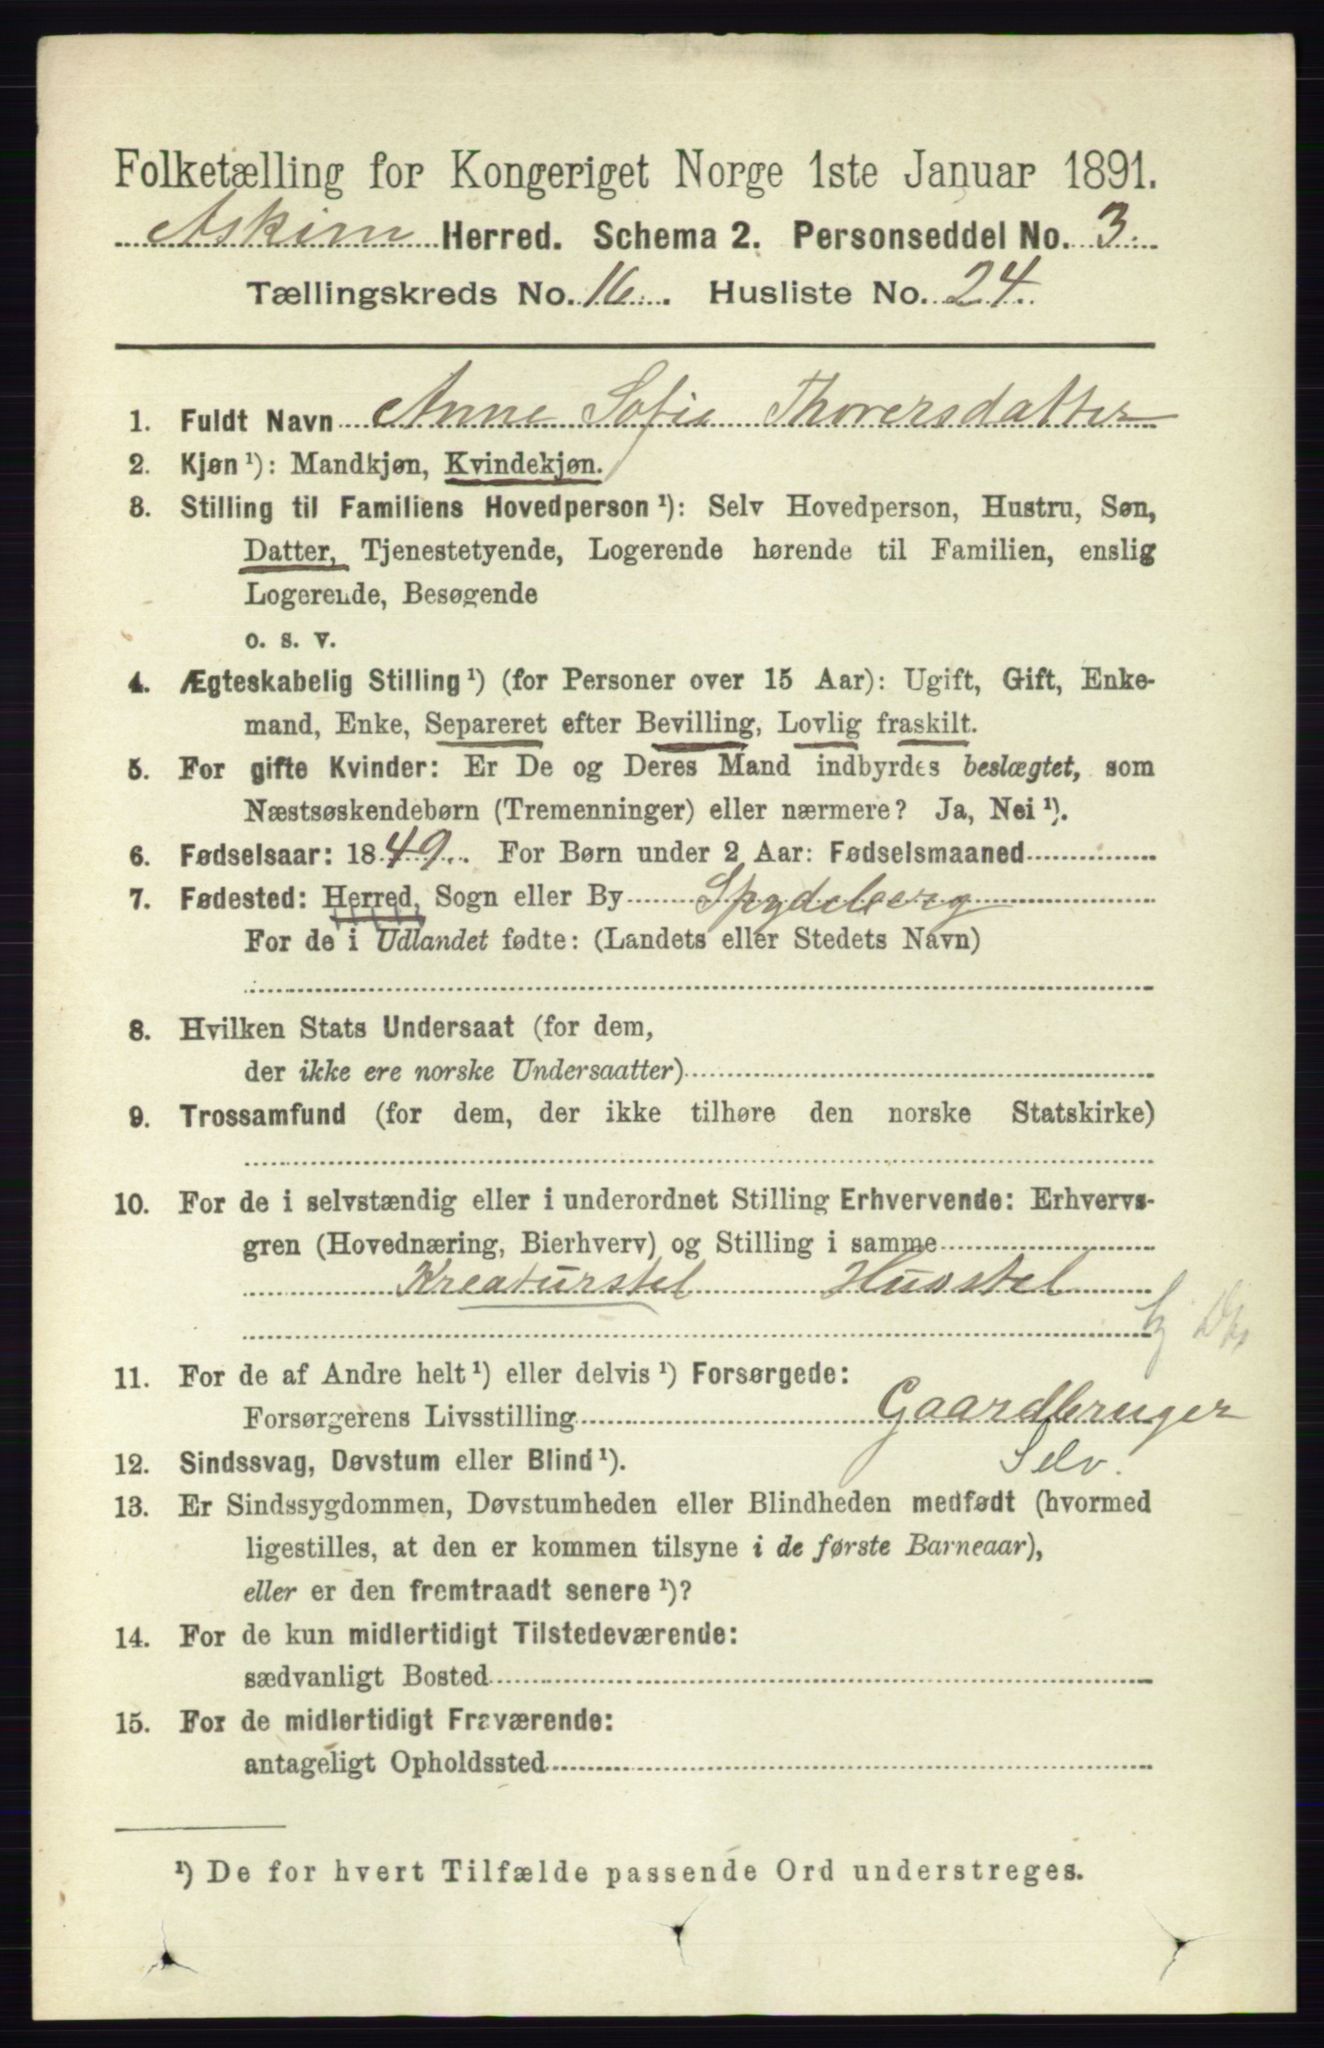 Folketælling for Kongeriget Norge 1ste Januar 1891.
Askim Herred. Schema 2. Personseddel No. 3.
Tællingskreds No. 16. Husliste No. 24.
1. Fuldt Navn Anne Sofie Thoversdatter
2. Kjøn ¹): Mandkjøn, Kvindekjøn.
3. Stilling til Familiens Hovedperson ¹): Selv Hovedperson, Hustru, Søn,
Datter, Tjenestetyende, Logerende hørende til Familien, enslig
Logerende, Besøgende
o. s. v.
4. Ægteskabelig Stilling ¹) (for Personer over 15 Aar): Ugift, Gift, Enke-
mand, Enke, Separeret efter Bevilling, Lovlig fraskilt.
5. For gifte Kvinder: Er De og Deres Mand indbyrdes beslægtet, som
Næstsøskendebørn (Tremenninger) eller nærmere? Ja, Nei ¹).
6. Fødselsaar: 1849. For Børn under 2 Aar: Fødselsmaaned
7. Fødested: Herred, Sogn eller By Spydeberg
For de i Udlandet fødte: (Landets eller Stedets Navn)
8. Hvilken Stats Undersaat (for dem,
der ikke ere norske Undersaatter)
9. Trossamfund (for dem, der ikke tilhøre den norske Statskirke)
10. For de i selvstændig eller i underordnet Stilling Erhvervende: Erhvervs-
gren (Hovednæring, Bierhverv) og Stilling i samme
Kreaturstel Husstel
11. For de af Andre helt ¹) eller delvis ¹) Forsørgede:
Forsørgerens Livsstilling Gaardbruger
12. Sindssvag, Døvstum eller Blind ¹). Selv.
13. Er Sindssygdommen, Døvstumheden eller Blindheden medfødt (hvormed
ligestilles, at den er kommen tilsyne i de første Barneaar),
eller er den fremtraadt senere ¹)?
14. For de kun midlertidigt Tilstedeværende:
sædvanligt Bosted
15. For de midlertidigt Fraværende:
antageligt Opholdssted
¹) De for hvert Tilfælde passende Ord understreges.